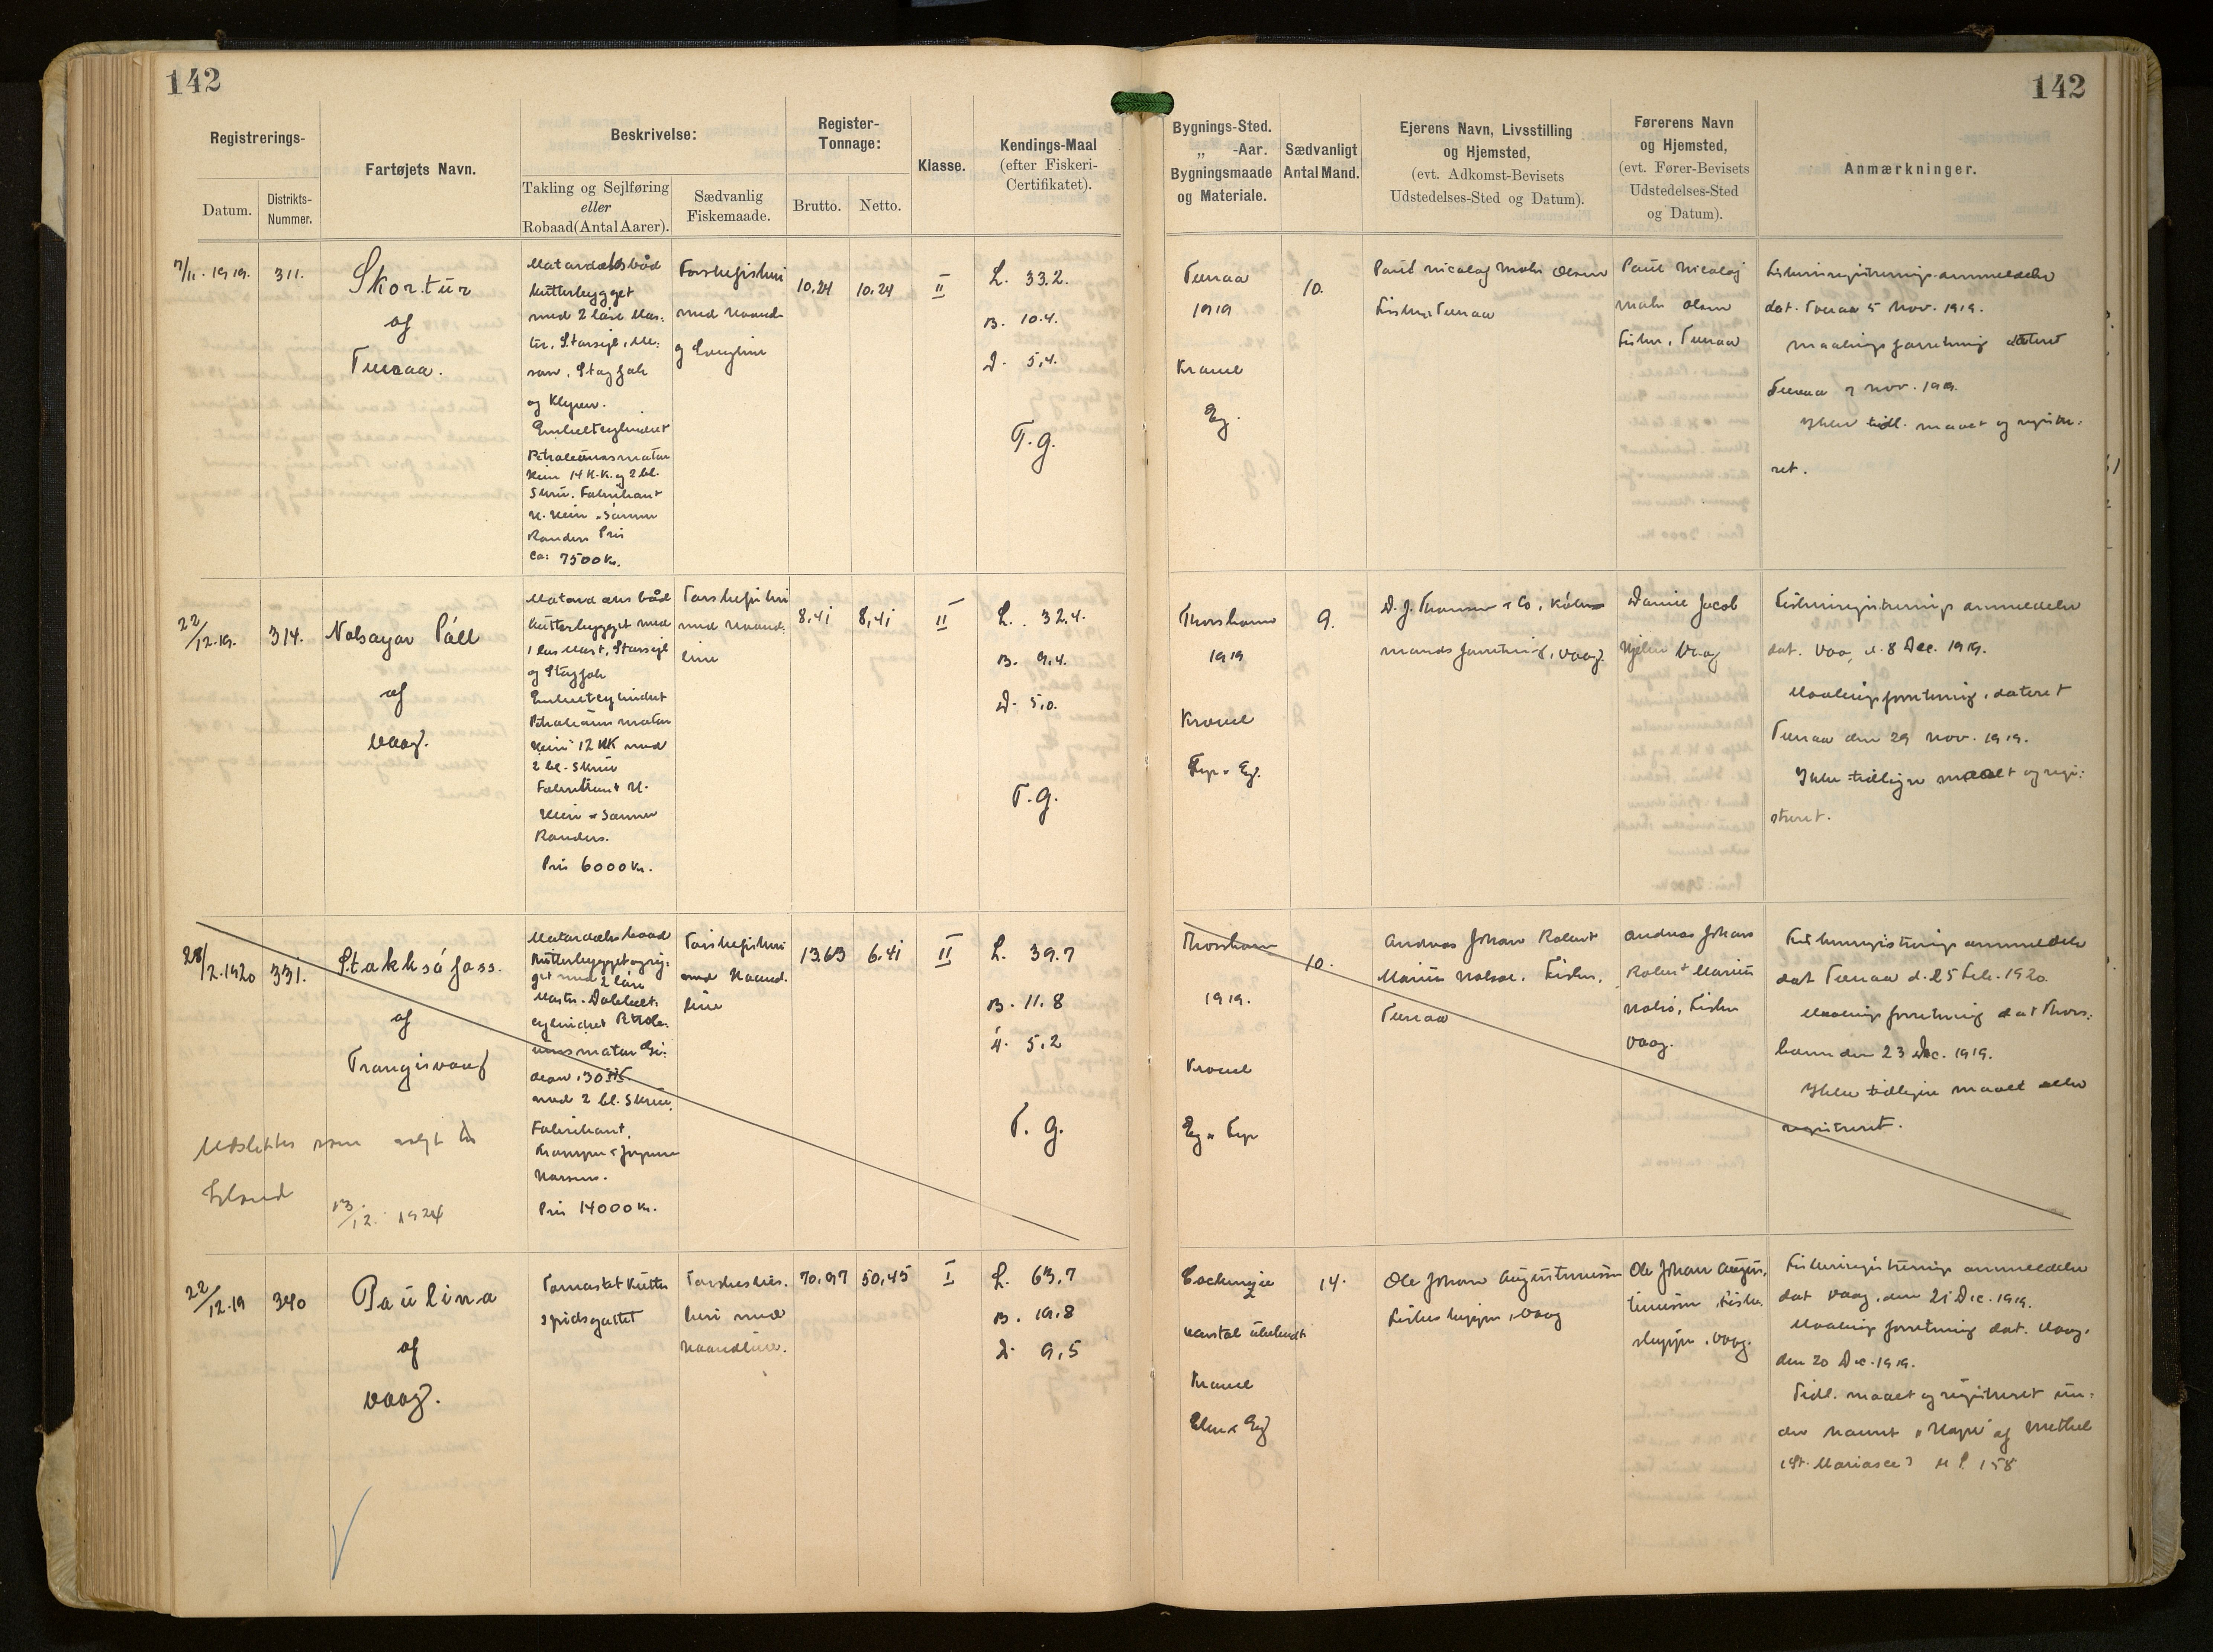 142
142
Registrerings-
Datum.
Distrikts-
Nummer.
Fartøjets Navn.
Beskrivelse:
Takling og Sejlføring
eller
Robaad (Antal Aarer).
Sædvanlig
Fiskemaade.
Register-
Tonnage:
Brutto.
Netto.
Klasse.
Kendings-Maal
(efter Fiskeri-
Certifikatet).
Bygnings-Sted.
„ -Aar.
Bygningsmaade
og Materiale.
Sædvanligt
Antal Mand.
Ejerens Navn, Livsstilling
og Hjemsted,
(evt. Adkomst-Bevisets
Udstedelses-Sted og Datum).
Førerens Navn
og Hjemsted,
(evt. Fører-Bevisets
Udstedelses-Sted
og Datum).
Anmærkninger.
7/11. 1919.
311.
Skortúr
af
Tveraa.
Motordæksbåd
kutterbygget
med 2 løse Mas-
ter, Storsejl, Me-
san, Stagfok
og Klyver.
Enkeltcylindret
Petroleumsmotor
Hein 14 H.K. og 2 bl.
Skrue. Fabrikant
H. Hein & Sønner
Randers Pris
ca: 7500 Kr.
Torskefiskeri
med Haand-
og Langline
10,24
10,24
II
L. 33.2.
B. 10.4.
D. 5,4.
T. G.
Tveraa
1919
Kravel
Eg.
10.
Poul Nicolaj Mohr Olsen
Fisker Tveraa
Poul Nicolaj
Mohr Olsen
Fisker, Tveraa
Fiskeriregistrerings-anmeldelse
dat. Tveraa 5 Nov. 1919.
Maalingsforretning dateret
Tveraa 7 Nov. 1919.
Ikke tidl. maalt og registre-
ret.
22/12.19.
314.
Nolsoyar Páll
af
Vaag.
Motordæksbåd
kutterbygget med
1 løs Mast, Storsejl
og Stagfok
Enkeltcylindret
Petroleumsmotor
Hein 12 HK med
2 bl. Skrue
Fabrikant H.
Hein & Sønner
Randers.
Pris 6000 Kr.
Torskefiskeri
med Haand-
line
8,41
8,41
II
L. 32.4.
B. 9.4.
D. 5,0.
T. G.
Thorshavn
1919
Kravel
Fyr & Eg.
9.
D. J. Thomsen & Co, Køb-
mandsforretning, Vaag.
Daniel Jacob
Hjelm Vaag
Fiskeriregistrerings anmeldelse
dat. Vaag, d. 8 Dec. 1919.
Maalingsforretning, dateret
Tveraa den 29 Nov. 1919.
Ikke tidligere maalt og regi-
streret.
28/2.1920
331.
Stakksáfoss.
af
Trangisvaag
Motordæksbaad
kutterbygget og rig-
get med 2 løse
Master. Dobbelt-
cylindret Petrole-
umsmotor Gi-
deon, 30 HK.
med 2 bl. Skrue,
Fabrikant,
Horsens.
Pris 14000 Kr.
Torskefiskeri
med Haand-
line
13.63
6.41
II
L. 39.7
B. 11.8
D. 5.2
T. G.
Thorshavn
1919.
Kravel
Eg & Fyr
10.
Andreas Johan Robert
Marius Holsø, Fisker,
Tveraa
Andreas Johan
Robert Marius
Holsø, Fisker
Vaag.
Fiskeriregistrerings anmeldelse
dat Tveraa d. 25 Feb. 1920.
Maalingsforretning dat Thors-
havn den 23 Dec. 1919.
Ikke tidligere maalt eller
registreret.
Udslettes som solgt til
Island
13/12. 1924
22/12.19
340
Paulina
af
Vaag.
Tomastet Kutter
spidsgattet
Torskefis-
keri med
Haandline.
70,97
50,45
I
L. 63,7
B. 19,8
D. 9,5
Ålder ubekendt
Kravel
Elm & Eg
14.
Ole Johan Augustinussen
Fiskeskipper, Vaag
Ole Johan Augus-
tinussen, Fiske-
skipper, Vaag.
Fiskeriregistrerings anmeldelse
dat Vaag, den 21 Dec. 1919.
Maalingsforretning dat. Vaag,
den 20 Dec. 1919.
Tidl. maalt og registreret un-
der Navnet „Hope" af Methil
M L 158